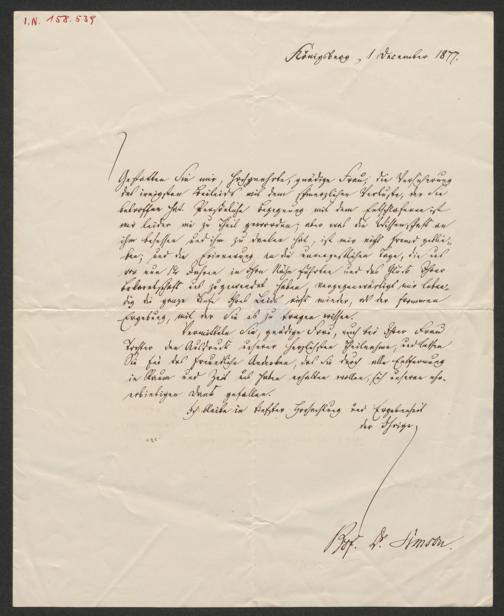 I.N. 158.539
Königsberg, 1 December 1877.
Gestatten Sie mir, Hochgeehrte, gnädige Frau, die Versicherung
des innigsten Beileids mit dem schmerzlichen Verluste, der Sie
betroffen hat. Persönliche Begegnung mit dem Entschlafenen ist
mir leider nie zu Theil geworden; aber was die Wissenschaft an
ihm besessen und ihm zu danken hat, ist mir nicht fremd geblie-
ben; und die Erinnerung an die unvergeßlichen Tage, die uns
vor nun Jahren in Ihre Nähe führten und das Glück Ihrer
Bekanntschaft uns zugewendet haben, vergegenwärtigt mir leben-
dig die ganze Tiefe Ihres Leids nicht minder, als der frommen
Ergebung, mit der Sie es zu tragen wissen.
Vermitteln Sie, gnädige Frau, auch bei Ihrer Frau
Tochter den Ausdruck unserer herzlichsten Theilnahme, und lassen
Sie Sich das freundliche Andenken, das Sie durch alle Entfernung
in Raum und Zeit uns haben erhalten wollen, Sich unseren ehr-
erbietigen Dank gefallen.
Ich bleibe in tiefster Hochachtung und Ergebenheit
der Ihrige
Prof. Dr. Simson.